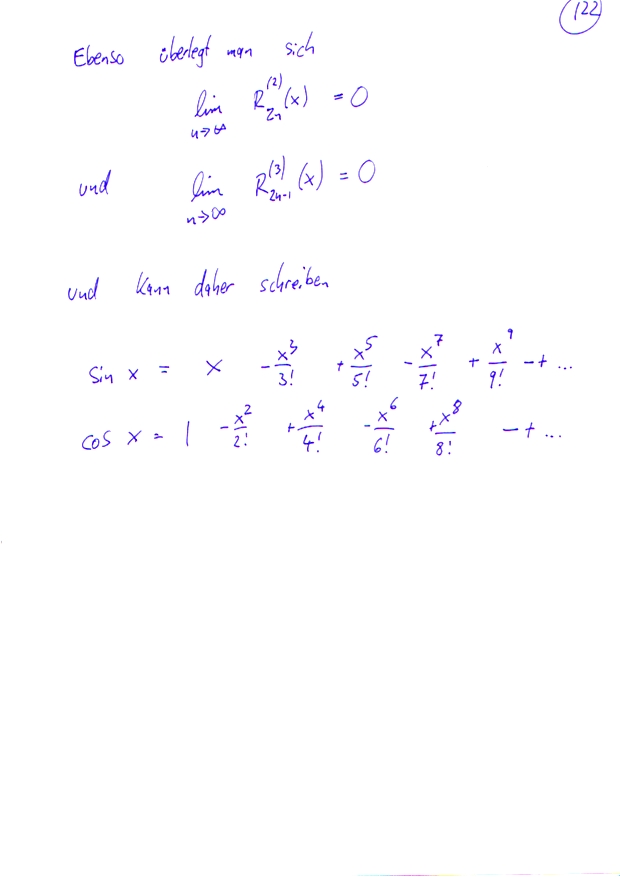 122
Ebenso überlegt man sich
lim n→∞ R_{2n}^{(2)}(x) = 0
und lim n→∞ R_{2n-1}^{(3)}(x) = 0
und kann daher schreiben
sin x = x - x^3/3! + x^5/5! - x^7/7! + x^9/9! - + ...
cos x = 1 - x^2/2! + x^4/4! - x^6/6! + x^8/8! - + ...